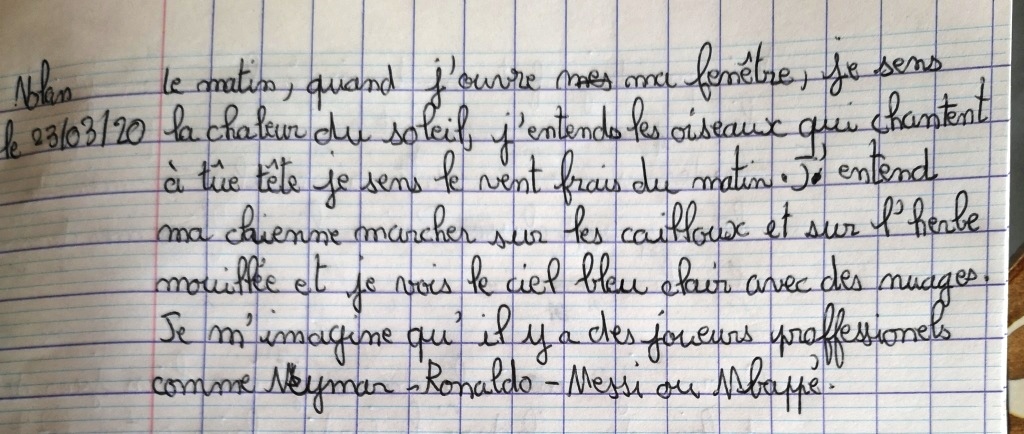 Nolan
le 23/03/20
le matin, quand j'ouvre mes ma fenêtre, je sens
la chaleur du soleil, j'entends les oiseaux qui chantent
à tûe tête je sens le vent frais du matin. J' entend
ma chienne marcher sur les cailloux et sur l'herbe
mouillée et je vois le ciel bleu clair avec des nuages.
Je m'imagine qu'il y a des joueurs proffessionels
comme Neymar - Ronaldo - Messi ou Mbappé.